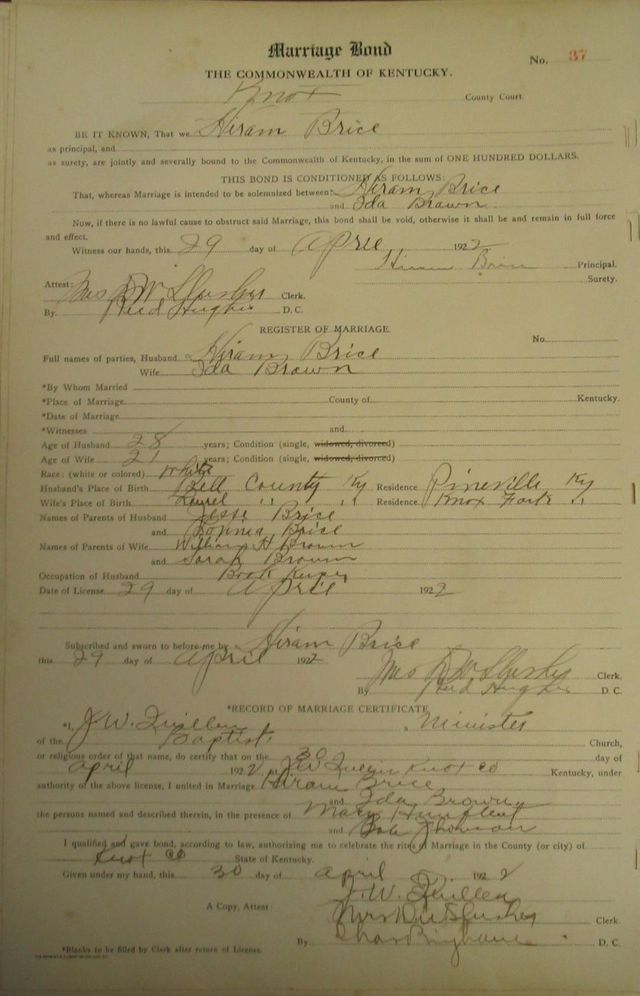 Marriage Bond
No. 37
THE COMMONWEALTH OF KENTUCKY.
Knox County Court.
BE IT KNOWN, That we Hiram Brice
as principal, and
as surety, are jointly and severally bound to the Commonwealth of Kentucky, in the sum of ONE HUNDRED DOLLARS.
THIS BOND IS CONDITIONED AS FOLLOWS:
That, whereas Marriage is intended to be solemnized between Hiram Brice
and Ida Brown
Now, if there is no lawful cause to obstruct said Marriage, this bond shall be void, otherwise it shall be and remain in full force
and effect.
Witness our hands, this 29 day of April 1922
Hiram Brice Principal.
Surety.
Attest: Mrs D W Slusher Clerk.
By Reed Hughes D. C.
REGISTER OF MARRIAGE.
No.
Full names of parties, Husband Hiram Brice
Wife Ida Brown
*By Whom Married
*Place of Marriage County of Kentucky.
*Date of Marriage
*Witnesses and
Age of Husband 28 years; Condition (single, widowed, divorced)
Age of Wife 21 years; Condition (single, widowed, divorced)
Race: (white or colored) White
Husband's Place of Birth Bell County Ky Residence Pineville Ky
Wife's Place of Birth Laurel " " " Residence Knox Fork "
Names of Parents of Husband Jesse Brice
and Brice
Names of Parents of Wife William H Brown
and Sarah Brown
Occupation of Husband Book Keeper
Date of License 29 day of April 1922
Subscribed and sworn to before me by Hiram Brice
this 29 day of April 1922
Mrs D W Slusher Clerk.
By Reed Hughes D. C.
*RECORD OF MARRIAGE CERTIFICATE
*I, J. W. Quillen, Minister
of the Baptist Church,
or religious order of that name, do certify that on the 30 day of
April 1922, at J W Knox Co Kentucky, under
authority of the above license, I united in Marriage Hiram Brice
and Ida Brown,
the persons named and described therein, in the presence of Mary
and Bob
I qualified and gave bond, according to law, authorizing me to celebrate the rites of Marriage in the County (or city) of
Knox Co State of Kentucky.
Given under my hand, this 30 day of April 1922
J. W. Quillen
A Copy, Attest Mrs D W Slusher Clerk.
By D. C.
*Blanks to be filled by Clerk after return of License.